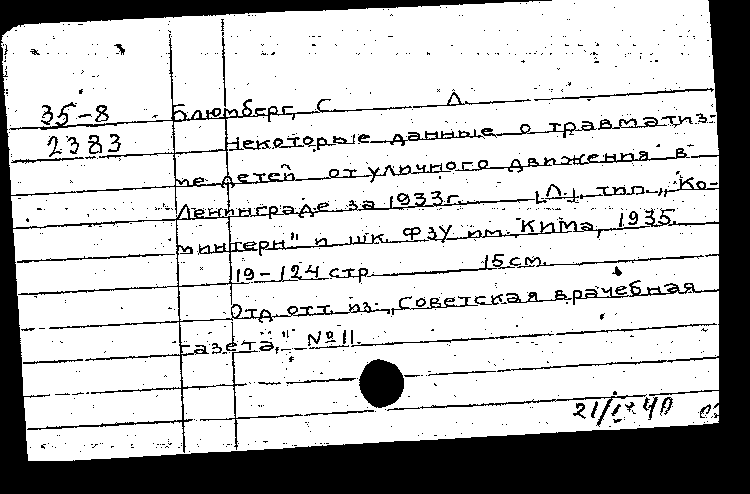 35-8 Блюмберг, С. Л.
2383 Некоторые данные о травматиз-
ме детей от уличного движения в
Ленинграде за 1933г. [Л.], тип. „Ко-
минтерн" и шк. ФЗУ им. КИМа, 1935.
19-124 стр. 15 см.
Отд. отт. из: „Советская врачебная
газета," №11.
21/IX 40